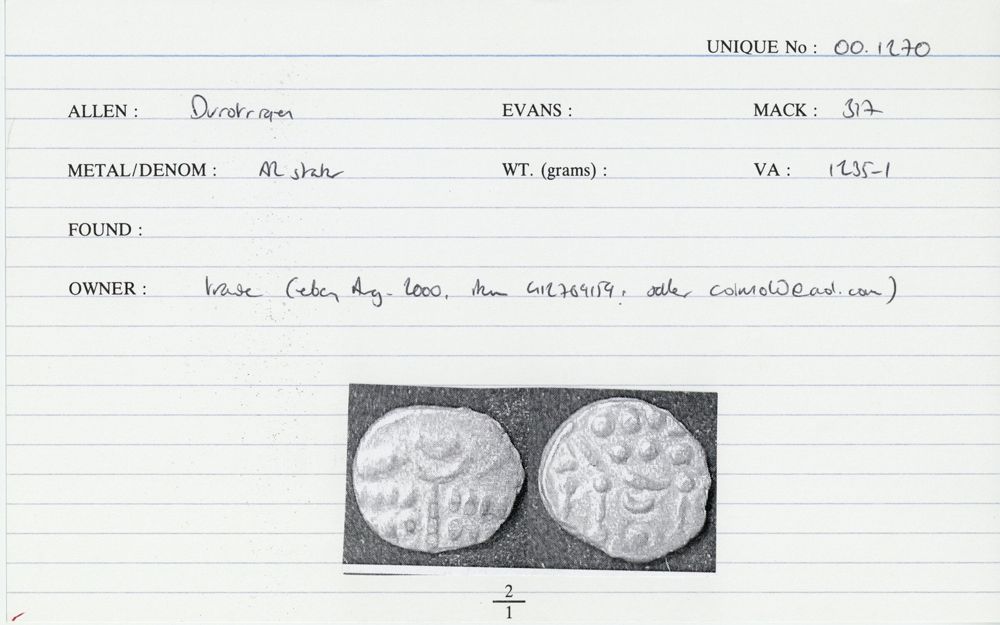 UNIQUE No : 00.1270
ALLEN : Durotrigan EVANS : MACK : 317
METAL/DENOM : AR stater WT. (grams) : VA : 1235-1
FOUND :
OWNER : trade (ebay Aug. 2000, item 412769159, seller
2
1